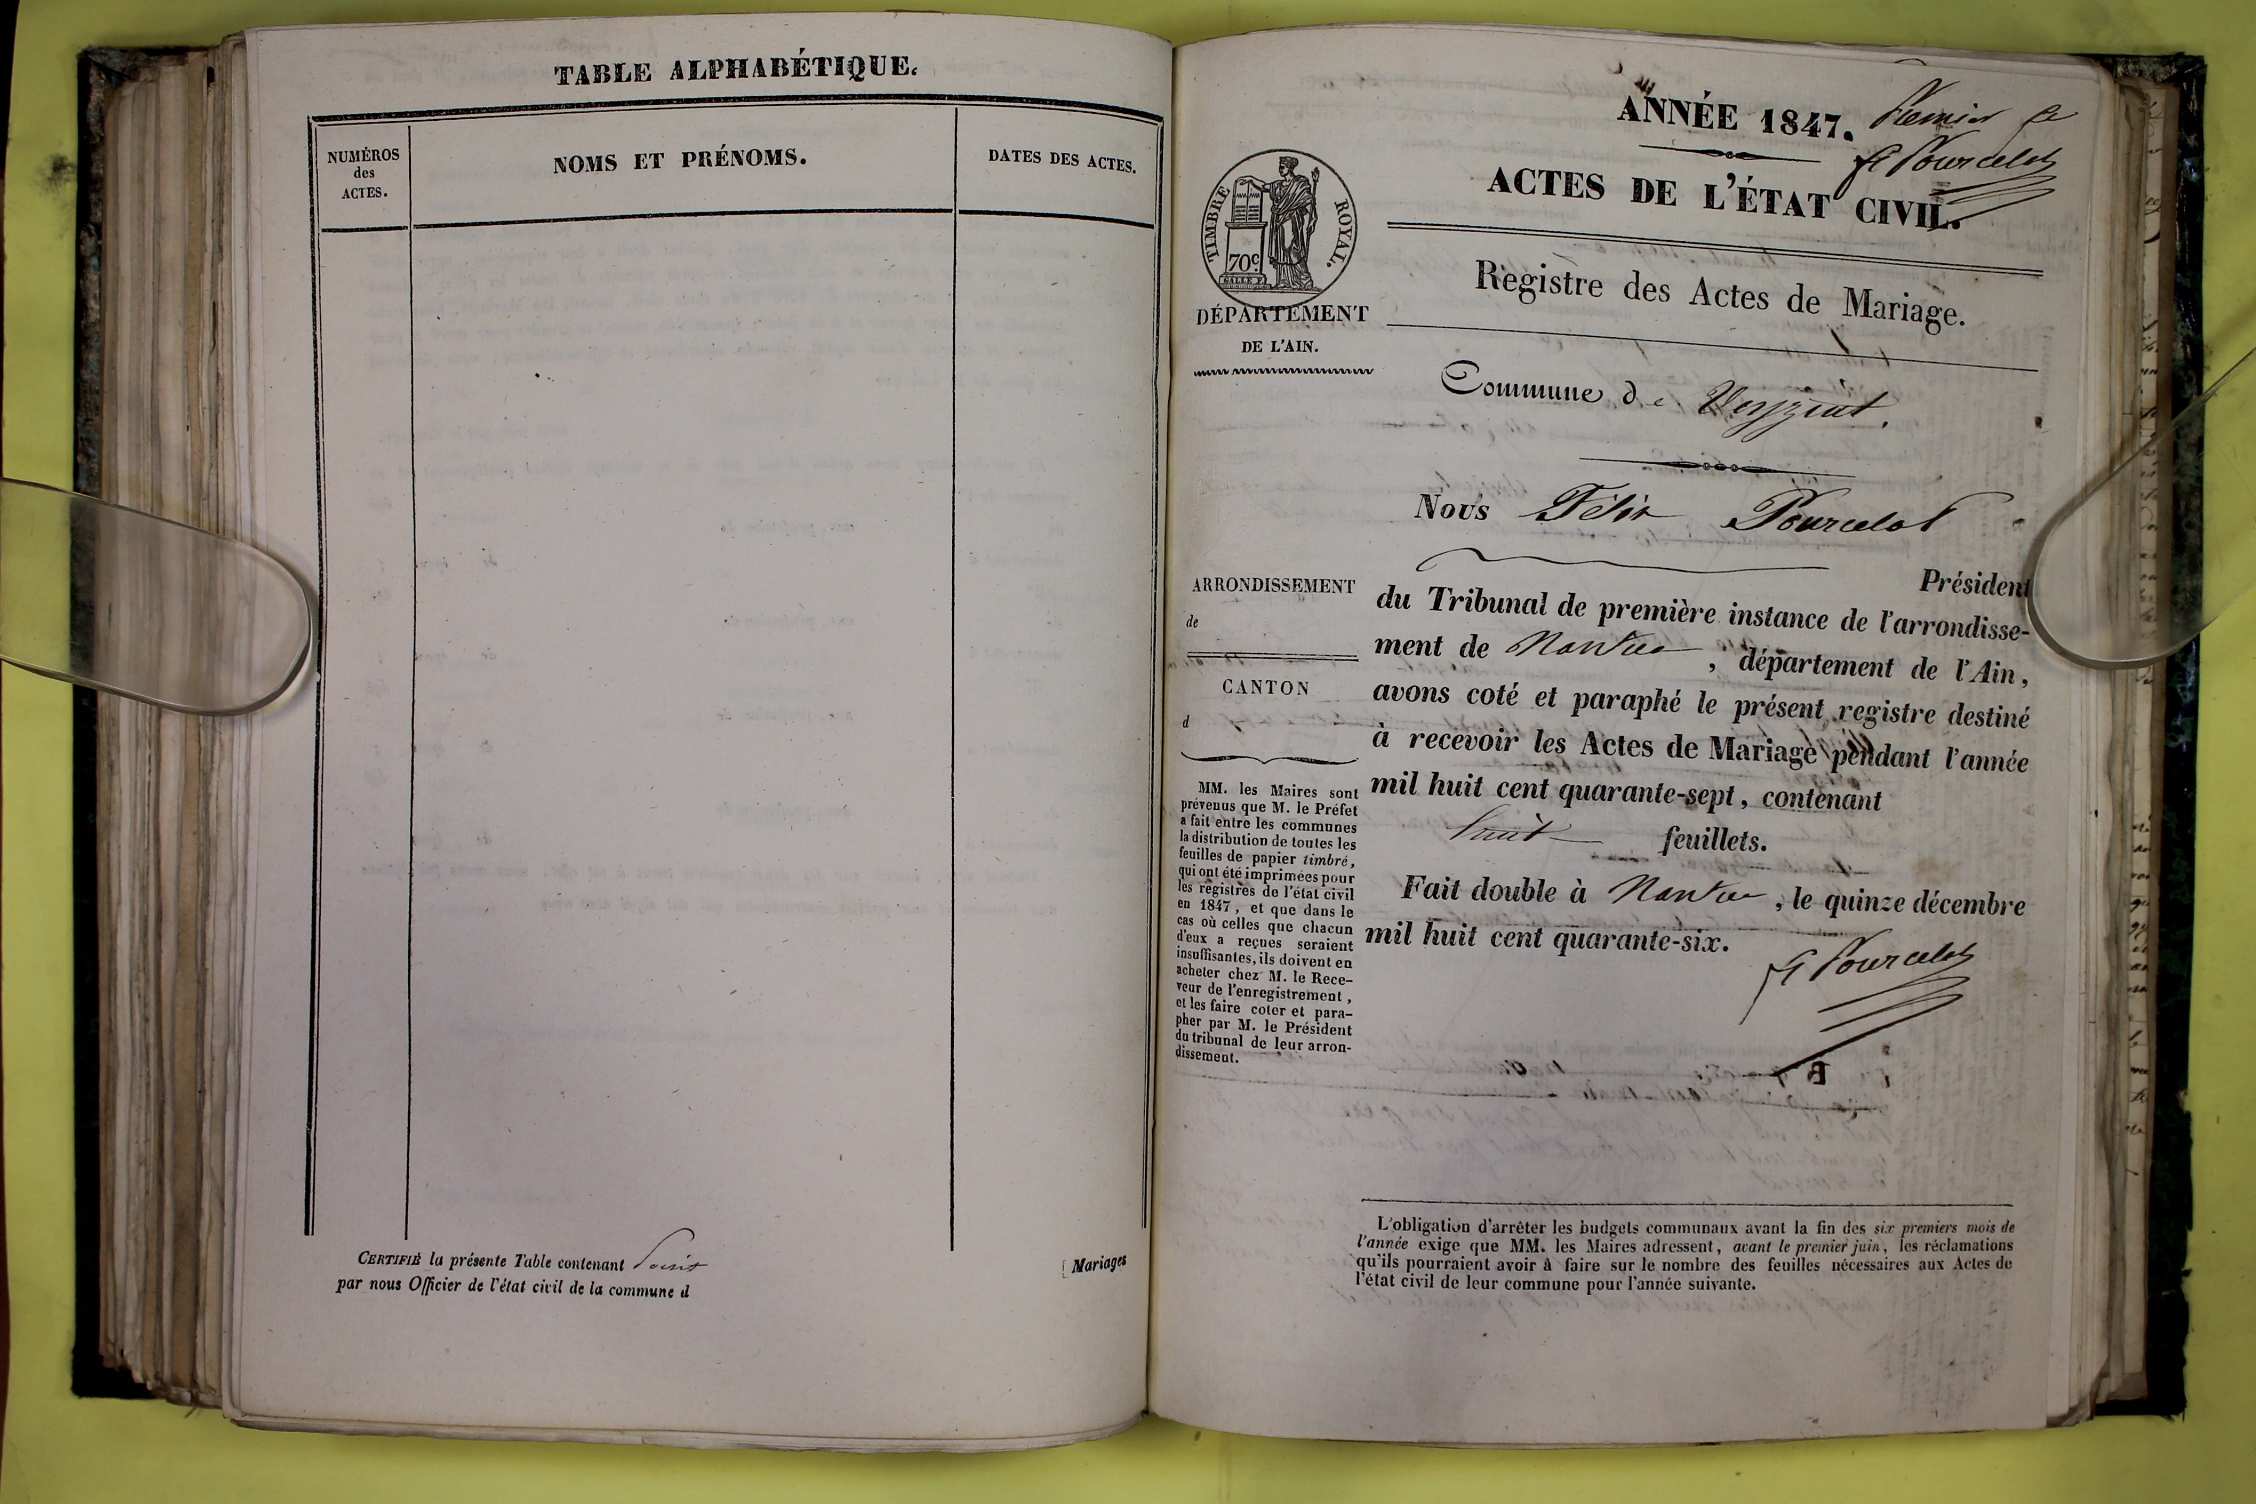 TABLE ALPHABÉTIQUE.
NUMÉROS
des
ACTES.
NOMS ET PRÉNOMS.
DATES DES ACTES.
CERTIFIÉ la présente Table contenant
par nous Officier de l'état civil de la commune d
[Mariages
ANNÉE 1847. Premier
F Pourcelot
ACTES DE L'ÉTAT CIVIL.
TIMBRE ROYAL.
70c
Registre des Actes de Mariage.
DÉPARTEMENT
DE L'AIN.
Commune de Veyziat.
Nous Félix Pourcelot
Président
ARRONDISSEMENT
de
CANTON
d
du Tribunal de première instance de l'arrondisse-
ment de Nantua, département de l'Ain,
avons coté et paraphé le présent registre destiné
à recevoir les Actes de Mariage pendant l'année
mil huit cent quarante-sept, contenant
huit feuillets.
Fait double à Nantua, le quinze décembre
mil huit cent quarante-six.
F Pourcelot
MM. les Maires sont
prévenus que M. le Préfet
a fait entre les communes
la distribution de toutes les
feuilles de papier timbré,
qui ont été imprimées pour
les registres de l'état civil
en 1847, et que dans le
cas où celles que chacun
d'eux a reçues seraient
insuffisantes, ils doivent en
acheter chez M. le Rece-
veur de l'enregistrement,
et les faire coter et para-
pher par M. le Président
du tribunal de leur arron-
dissement.
L'obligation d'arrêter les budgets communaux avant la fin des six premiers mois de
l'année exige que MM. les Maires adressent, avant le premier juin, les réclamations
qu'ils pourraient avoir à faire sur le nombre des feuilles nécessaires aux Actes de
l'état civil de leur commune pour l'année suivante.